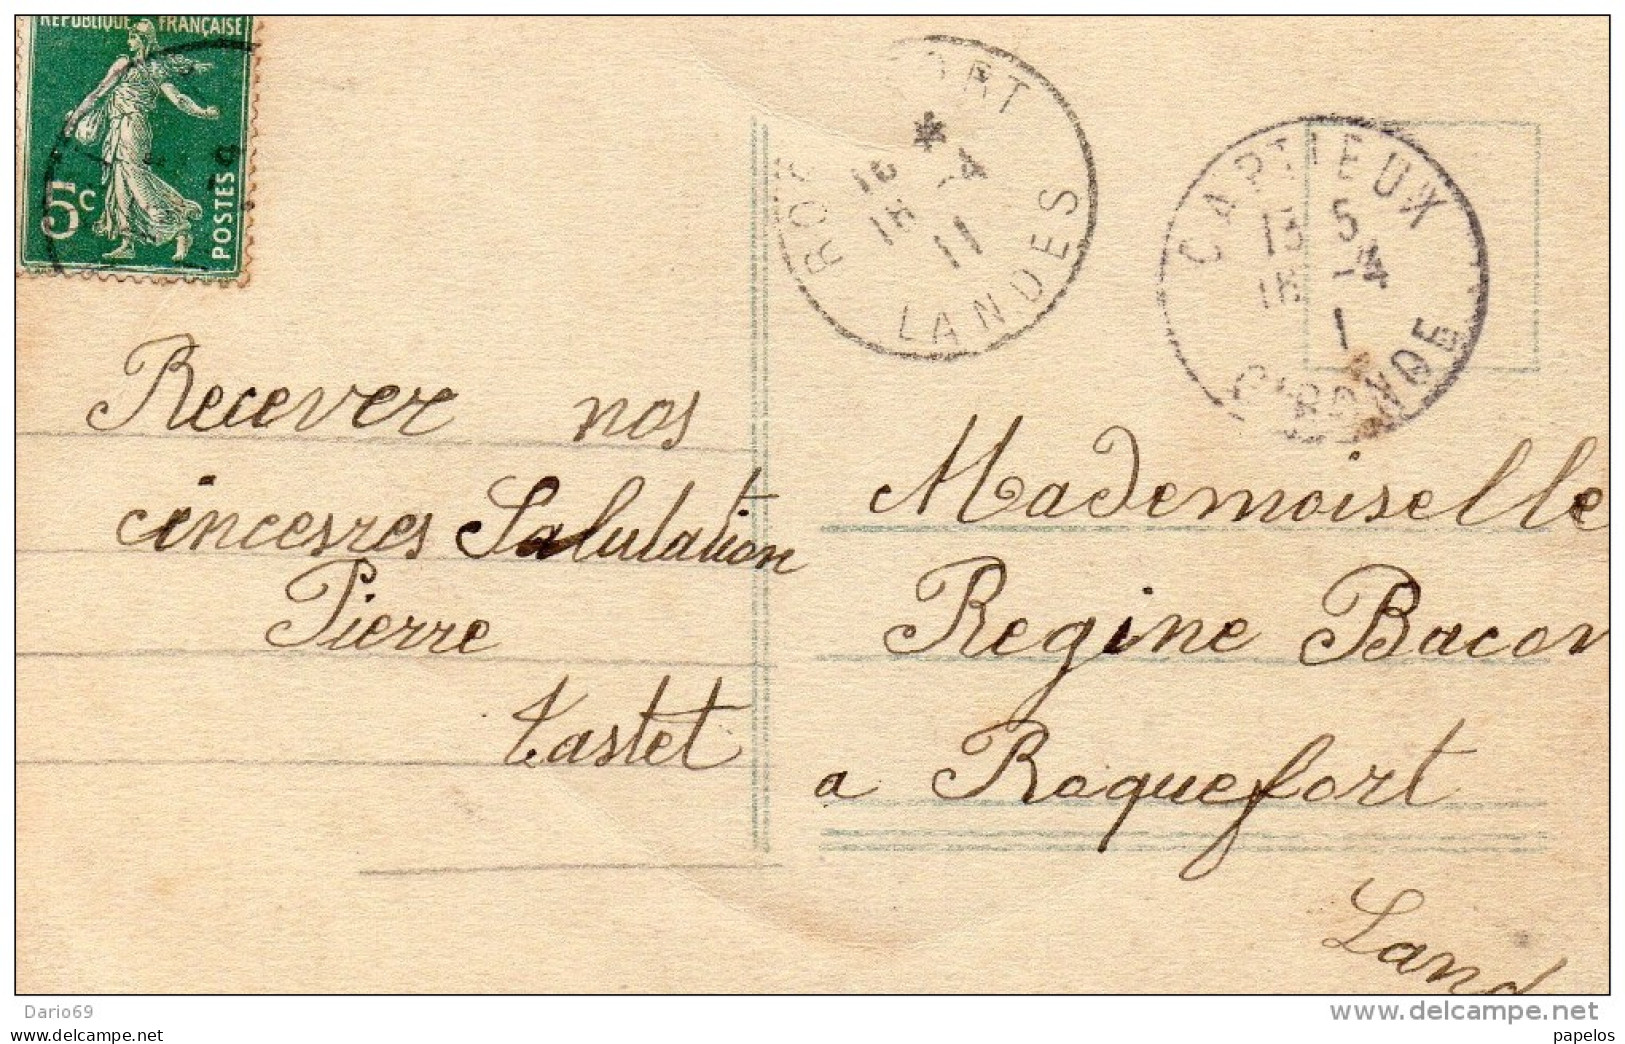 REPUBLIQUE FRANÇAISE
5c
POSTES
LANDES
11
CAPTIEUX
GIRONDE
Recever nos
cincesres Salutation
Pierre
Tastet
Mademoiselle
Regine Bacon
a Roquefort
Land
Dario69
www.delcampe.net
papelos